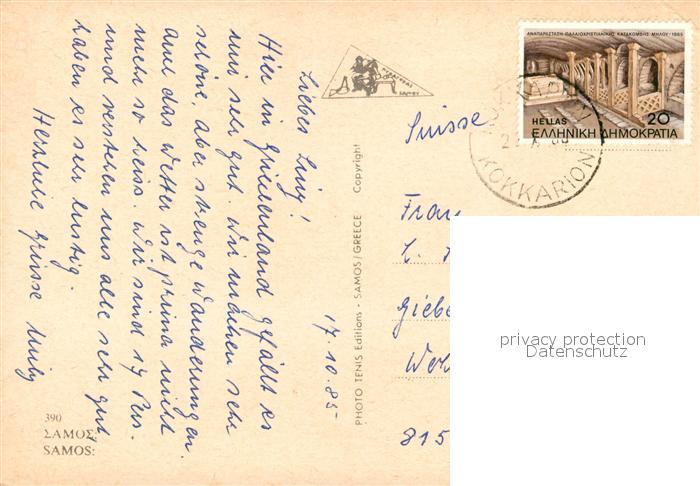 17.10.85-
Liebes Liny!
Hier in Griechenland gefällt es
uns sehr gut. Wir machen sehr
schöne, aber strenge Wanderungen.
und das Wetter ist prima nicht
mehr so heiss. Wir sind 17 Pers.
und verstehen uns alle sehr gut,
haben es sehr lustig.
Herzliche Grüsse
390
ΣΑΜΟΣ:
SAMOS:
PHOTO TENIS Editions - SAMOS/GREECE Copyright
ΑΝΑΠΑΡΑΣΤΑΣΗ ΠΑΛΑΙΟΧΡΙΣΤΙΑΝΙΚΗΣ ΚΑΤΑΚΟΜΒΗΣ ΜΗΛΟΥ · 1985
HELLAS 20
ΕΛΛΗΝΙΚΗ ΔΗΜΟΚΡΑΤΙΑ
KOKKARION
Suisse
Frau
L.
Giebe
815
privacy protection
Datenschutz